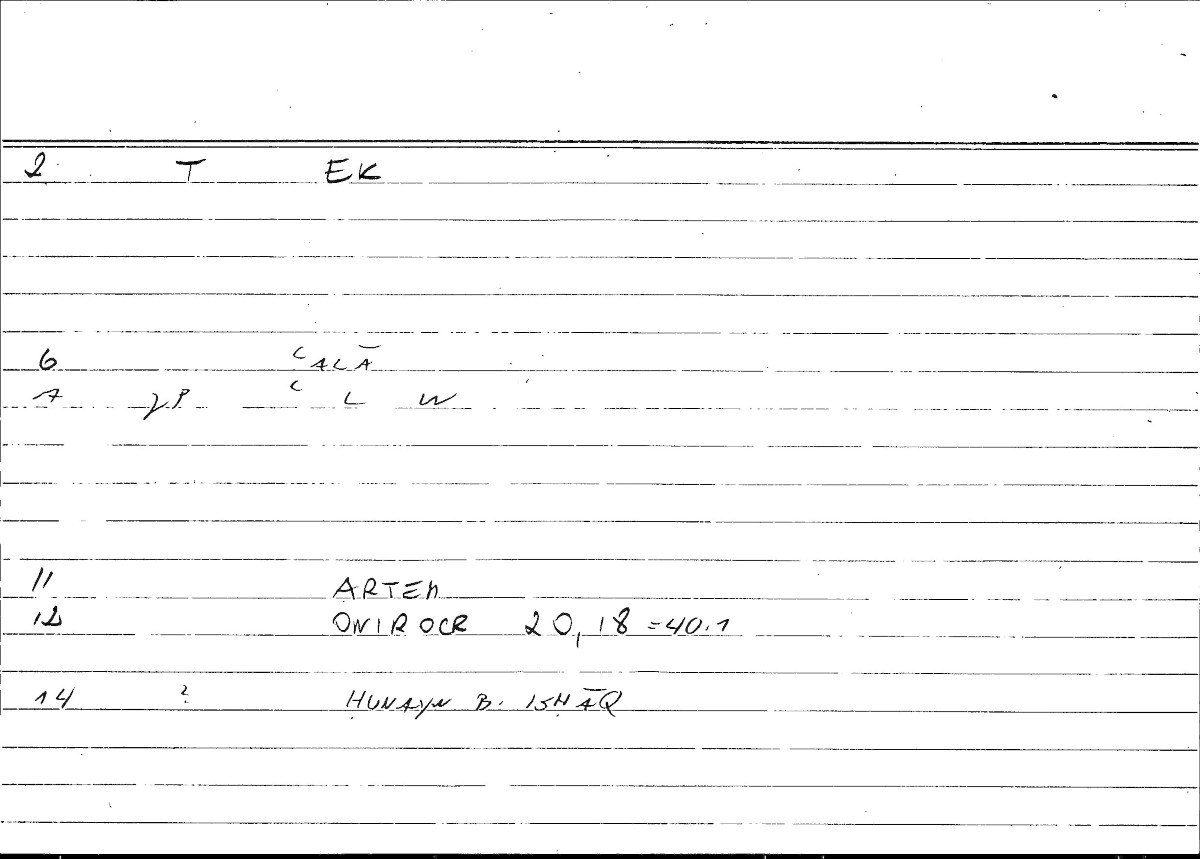 2 T EK
6 ʿALĀ
7 gP ʿ L W
11 ARTEM
12 ONIROCR 20,18 = 40.1
14 ? ḤUNAYN B. ISḤĀQ